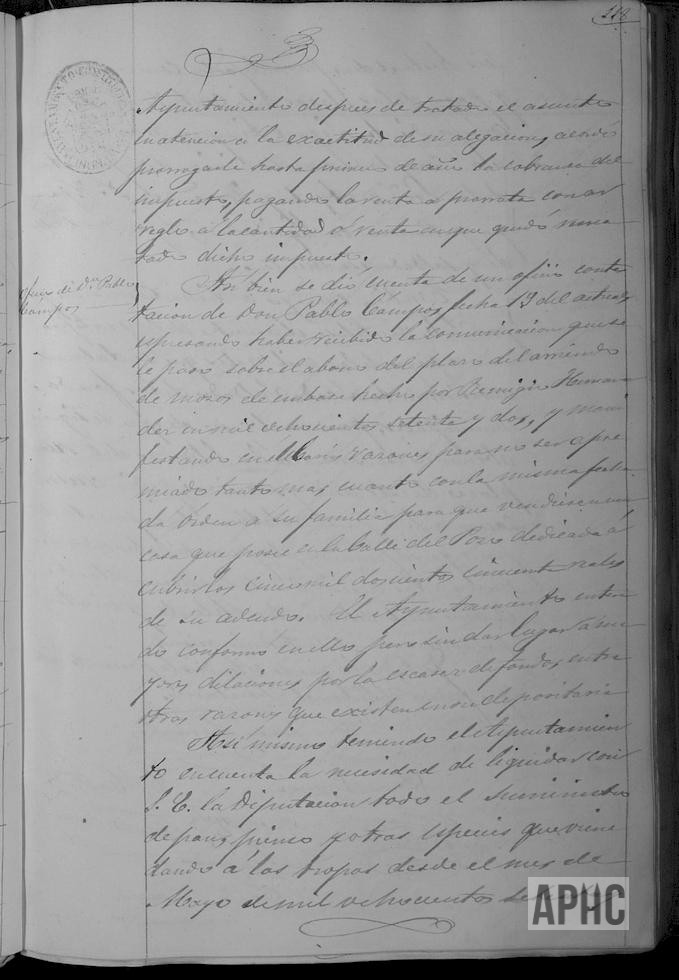 118
Ayuntamiento despues de tratado el asunto
en atencion a la exactitud de su alegacion, acordó
prorrogarle hasta primero de año la cobranza del
impuesto, pagando la renta a prorrata con ar
reglo á la cantidad ó renta en que quedó rema
tado dicho impuesto.
Oficio de Dn Pablo
Campos
Asi bien se dió cuenta de un oficio contes
tacion de Don Pablo Campos, fecha 19 del actual,
espresando haber recibido la comunicacion que se
le paso sobre el abono del plazo del arriendo
de mozos de embase hecho por Remigio Hernan
dez en mil ochocientos setenta y dos, y mani
festando en el varias razones para no ser apre
miado tanto mas cuanto con la misma fecha
da órden a su familia para que vendiese una
casa que posee en la Calle del Pozo dedicada á
cubrir los cinco mil doscientos cincuenta reales
de su adeudo. El Ayuntamiento
conforme en ello pero sin dar lugar a ma
yores dilaciones por la escasez de fondos, entre
otras razones que existen en su depositaria
Asi mismo teniendo el Ayuntamien
to en cuenta la necesidad de liquidar con
S. E. la Diputacion todo el suministro
de pan, pienso y otras especies que viene
dando á las tropas desde el mes de
Mayo de mil ochocientos
APHC